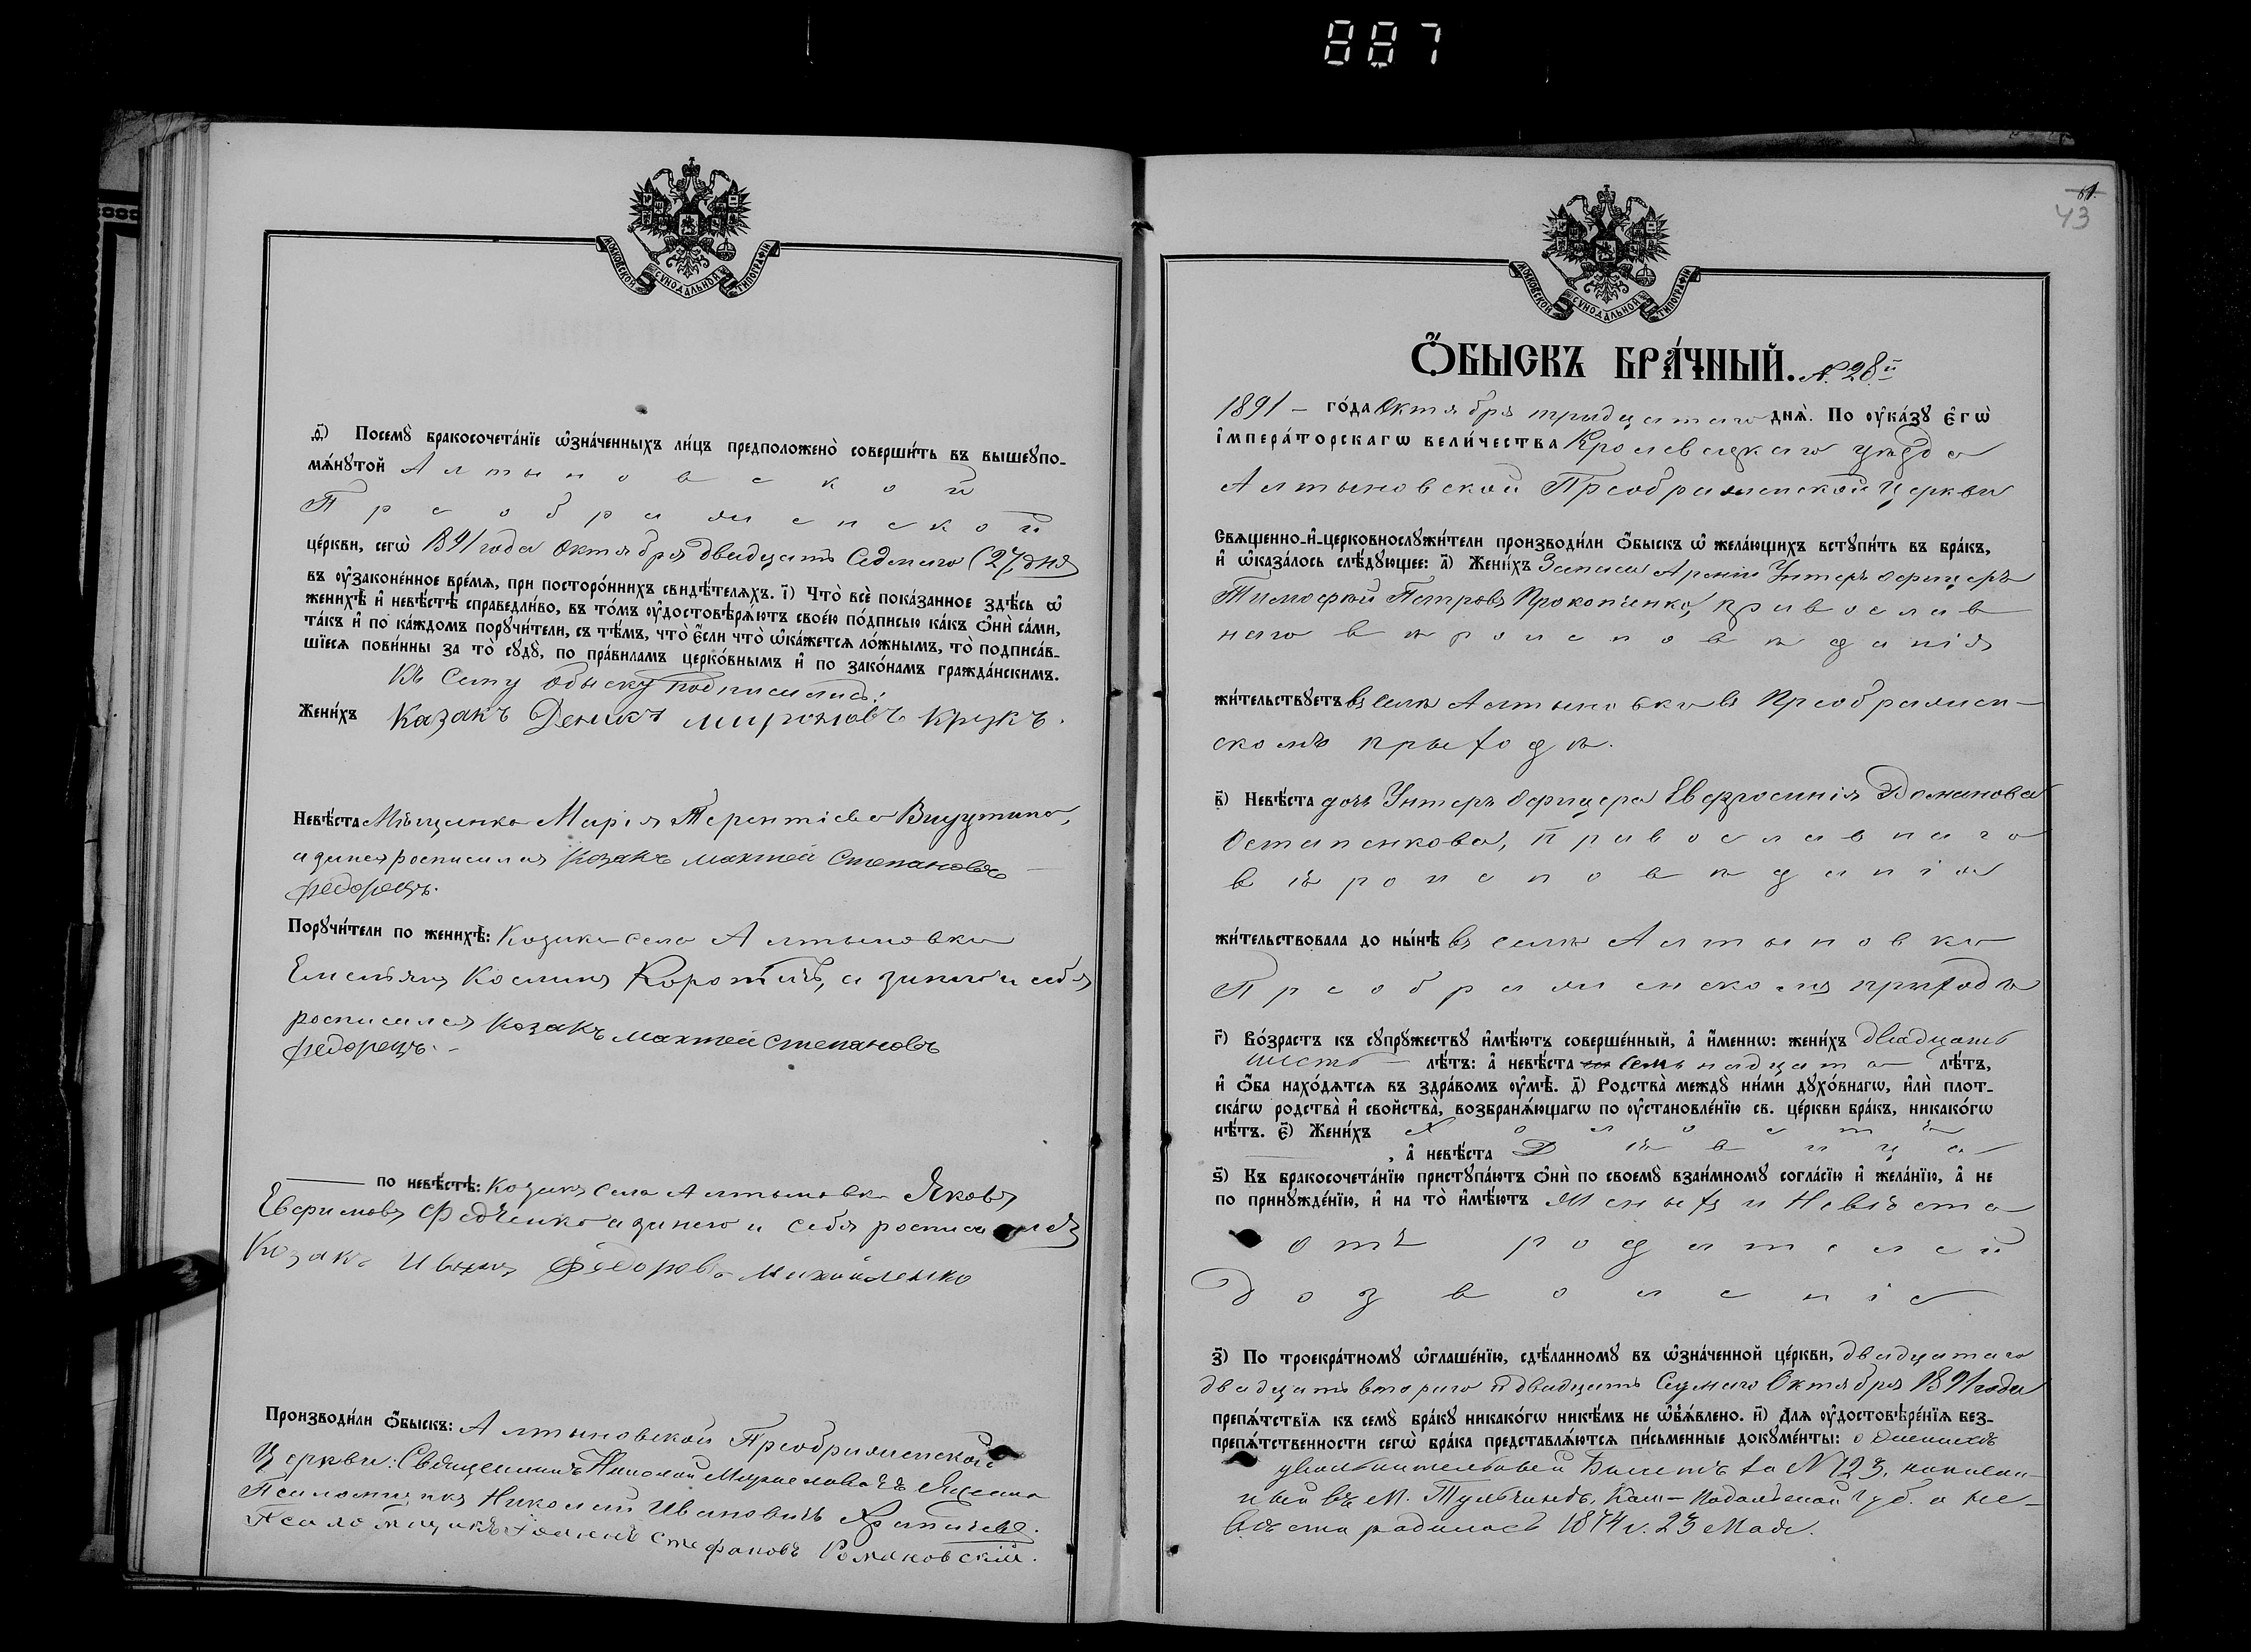 887
МОСКОВСКОЙ СѴНОДАЛЬНОЙ ТИПОГРАФІИ
ѳ҃) Посемꙋ̀ бракосочета́нїе ѡ҆зна́ченныхъ ли́цъ предположено̀ соверши́ть въ вышеꙋпо-
мѧ́нꙋтой Алтыновской
Преображенской
це́ркви, сегѡ̀ 1891 года Октября двадцать седмаго (27) дня
въ ᲂу҆зако́ненное вре́мѧ, при посторо́ннихъ свидѣ́телѧхъ. і҃) Что̀ всѐ пока́занное здѣ́сь ѡ҆
женихѣ̀ и҆ невѣ́стѣ справедли́во, въ то́мъ ᲂу҆достовѣрѧ́ютъ свое́ю по́дписью ка́къ ѻ҆нѝ са́ми,
та́къ и҆ по ка́ждомъ порꙋчи́тели, съ тѣ́мъ, что̀ є҆́сли что̀ ѡ҆ка́жетсѧ ло́жнымъ, то̀ подписа́в-
шїесѧ пови́нны за то̀ сꙋдꙋ̀, по пра́виламъ церко́внымъ и҆ по зако́намъ гражда́нскимъ.
Къ сему обыску подписались:
Жени́хъ Казакъ Денисъ Мироновъ Крукъ.
Невѣ́ста Мѣщанка Марія Терентіева
а за нея росписался Козакъ Мактей Степановъ
Федорецъ.
Порꙋчи́тели по женихѣ̀: Козакъ села Алтыновки
Емельянъ Косминъ Коротичъ, а за него и себя
росписался Козакъ Мактей Степановъ
Федорецъ.
по невѣ́стѣ: Козакъ села Алтыновки Яковъ
Евфимовъ Федченко а за него и себя росписался
Козакъ Иванъ Федоровъ Михайленко
Производи́ли ѻ҆́быскъ: Алтыновской Преображенской
Церкви: Священникъ Николай
Псаломщикъ Николай Ивановичъ
Псаломщикъ Стефановъ Романовскій.
43
МОСКОВСКОЙ СѴНОДАЛЬНОЙ ТИПОГРАФІИ
Ѻ҆́БЫСКЪ БРА́ЧНЫЙ. № 28й
1891 – го́да Октября тридцатаго днѧ̀. По ᲂу҆ка́зꙋ є҆гѡ̀
і҆мпера́торскагѡ вели́чества Кролевецкаго уѣзда
Алтыновской Преображенской Церкви
Свѧщенно-и҆-церковнослꙋжи́тели производи́ли ѻ҆́быскъ ѡ҆ жела́ющихъ встꙋпи́ть въ бра́къ,
и҆ ѡ҆каза́лось слѣ́дꙋющее: а҃) Жени́хъ Запаса Арміи Унтеръ офицеръ
Тимофей Петровъ Прокопенко, православ
наго вѣроисповѣданія
жи́тельствꙋетъ въ селѣ Алтыновкѣ въ Преображен-
скомъ приходѣ.
в҃) Невѣ́ста дочь Унтеръ офицера Евфросинія Доманова
Остапенкова, православнаго
вѣроисповѣданія
жи́тельствовала до ны́нѣ въ селѣ Алтыновкѣ
Преображенскомъ приходѣ
г҃) Во́зрастъ къ сꙋпрꙋ́жествꙋ и҆мѣ́ютъ соверше́нный, а҆ и҆́меннѡ: жени́хъ двадцать
шесть – лѣ́тъ: а҆ невѣ́ста семьнадцать – лѣ́тъ,
и҆ ѻ҆́ба нахо́дѧтсѧ въ здра́вомъ ᲂу҆мѣ̀. д҃) Родства̀ междꙋ̀ ни́ми дꙋхо́внагѡ, и҆лѝ плот-
ска́гѡ родства̀ и҆ сво́йства̀, возбранѧ́ющагѡ по ᲂу҆становле́нїю св. це́ркви бра́къ, никако́гѡ
нѣ́тъ. є҃) Жени́хъ Холостъ
, а҆ невѣ́ста Дѣвица
ѕ҃) Къ бракосочета́нїю пристꙋпа́ютъ ѻ҆нѝ по своемꙋ̀ взаи́мномꙋ согла́сїю и҆ жела́нїю, а҆ не
по принꙋжде́нїю, и҆ на то̀ и҆мѣ́ютъ Женихъ и Невѣста
отъ родителей
дозволеніе
з҃) По троекра́тномꙋ ѡ҆глаше́нїю, сдѣ́ланномꙋ въ ѡ҆зна́ченной це́ркви, двадцатаго
двадцать втораго и двадцать седмаго Октября 1891 года
препѧ́тствїѧ къ семꙋ̀ бра́кꙋ никако́гѡ никѣ́мъ не ѡ҆б̾ѧ́влено. и҃) Длѧ ᲂу҆достовѣре́нїѧ без-
препѧ́тственности сегѡ̀ бра́ка представлѧ́ютсѧ пи́сьменные докꙋме́нты: о женихѣ
увольнительный Билетъ за № 123,
ный въ М. Тульчинѣ, Кам-Подольской губ. а не-
вѣста родилась 1874 г. 23 Мая.